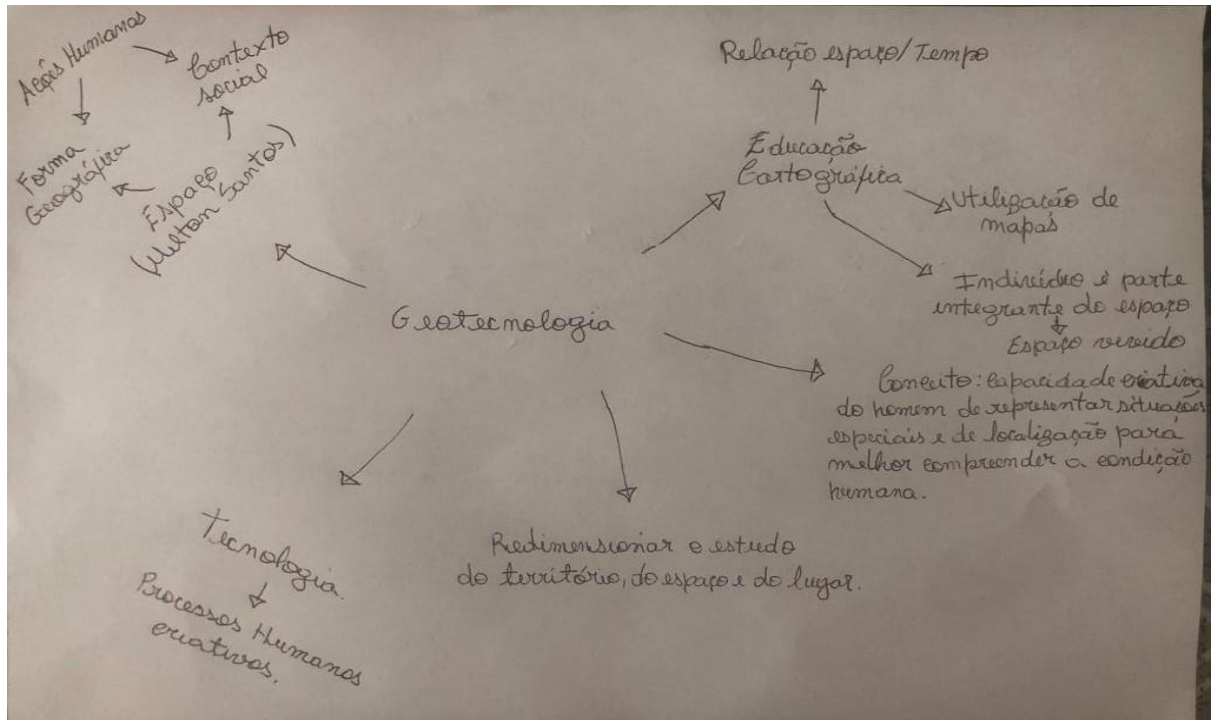 Ações Humanas
Contexto
social
Forma
Geográfica
Espaço
(Milton Santos)
Relação espaço/Tempo
Educação
Cartográfica
Utilização de
mapas
Indivíduo é parte
integrante do espaço
Espaço vivido
Geotecnologia
Conceito: capacidade criativa
do homem de representar situações
especiais e de localização para
melhor compreender a condição
humana.
Tecnologia.
Processos Humanos
criativos.
Redimensionar o estudo
do território, do espaço e do lugar.